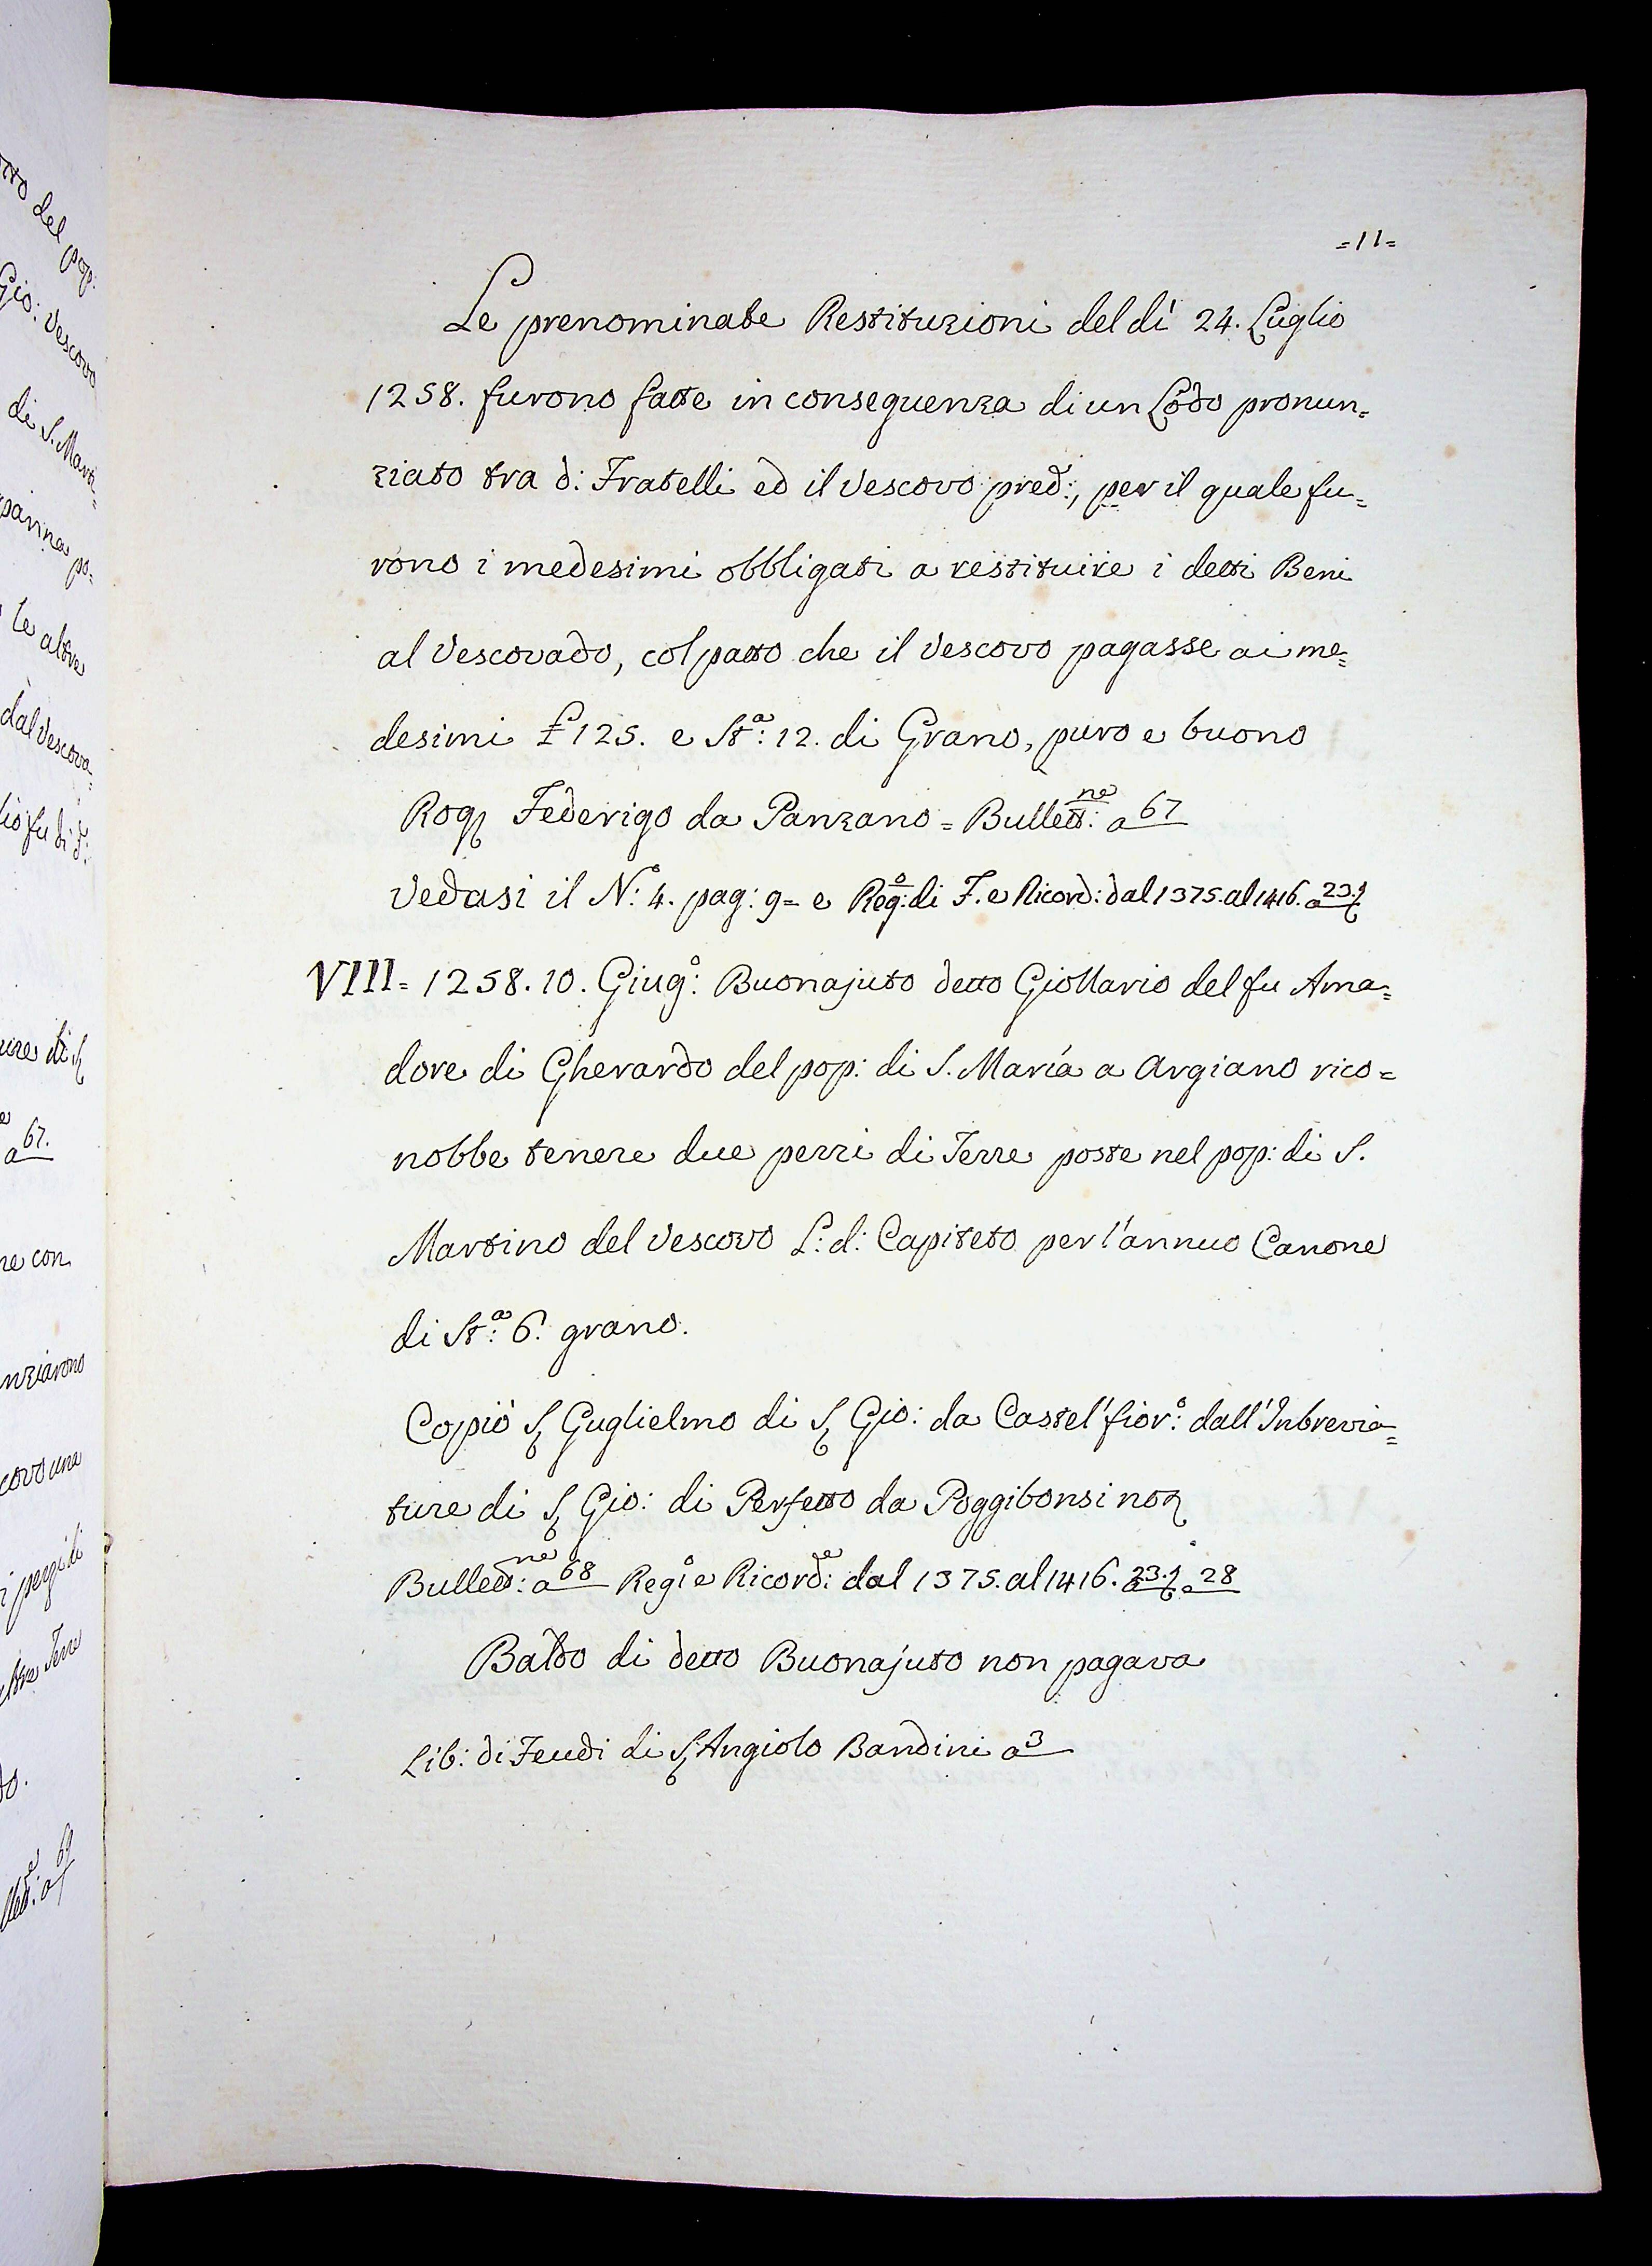 =11=
Le prenominate Restituzioni del dì 24. Luglio
1258. furono fatte in conseguenza di un Lodo pronun=
ziato tra d: Fratelli ed il Vescovo pred:, per il quale fu=
rono i medesimi obbligati a restituire i detti Beni
al Vescovado, col patto che il Vescovo pagasse ai me=
desimi £ 125. e St:ª 12. di Grano, puro e buono
Rog Federigo da Panzano = Bullett:ne a 67
Vedasi il N:º 4. pag: 9= e Reg:º di F. e Ricord: dal 1375. al 1416. a 23.
VIII= 1258. 10. Giug:º Buonajuto detto Giollario del fu Ama=
dore di Gherardo del pop: di S. Maria a Argiano rico=
nobbe tenere due pezzi di Terre poste nel pop: di S.
Martino del Vescovo L: d: Capiteto per l'annuo Canone
di St:ª 6. grano.
Copiò S Guglielmo di S Gio: da Castel'fior:º dall'Inbrevia=
ture di S Gio: di Perfetto da Poggibonsi not
Bullett:ne a 68 Regº e Ricord:e dal 1375. al 1416. a 23. a 28
Baldo di detto Buonajuto non pagava
Lib: di Feudi di S Angiolo Bandini a 3